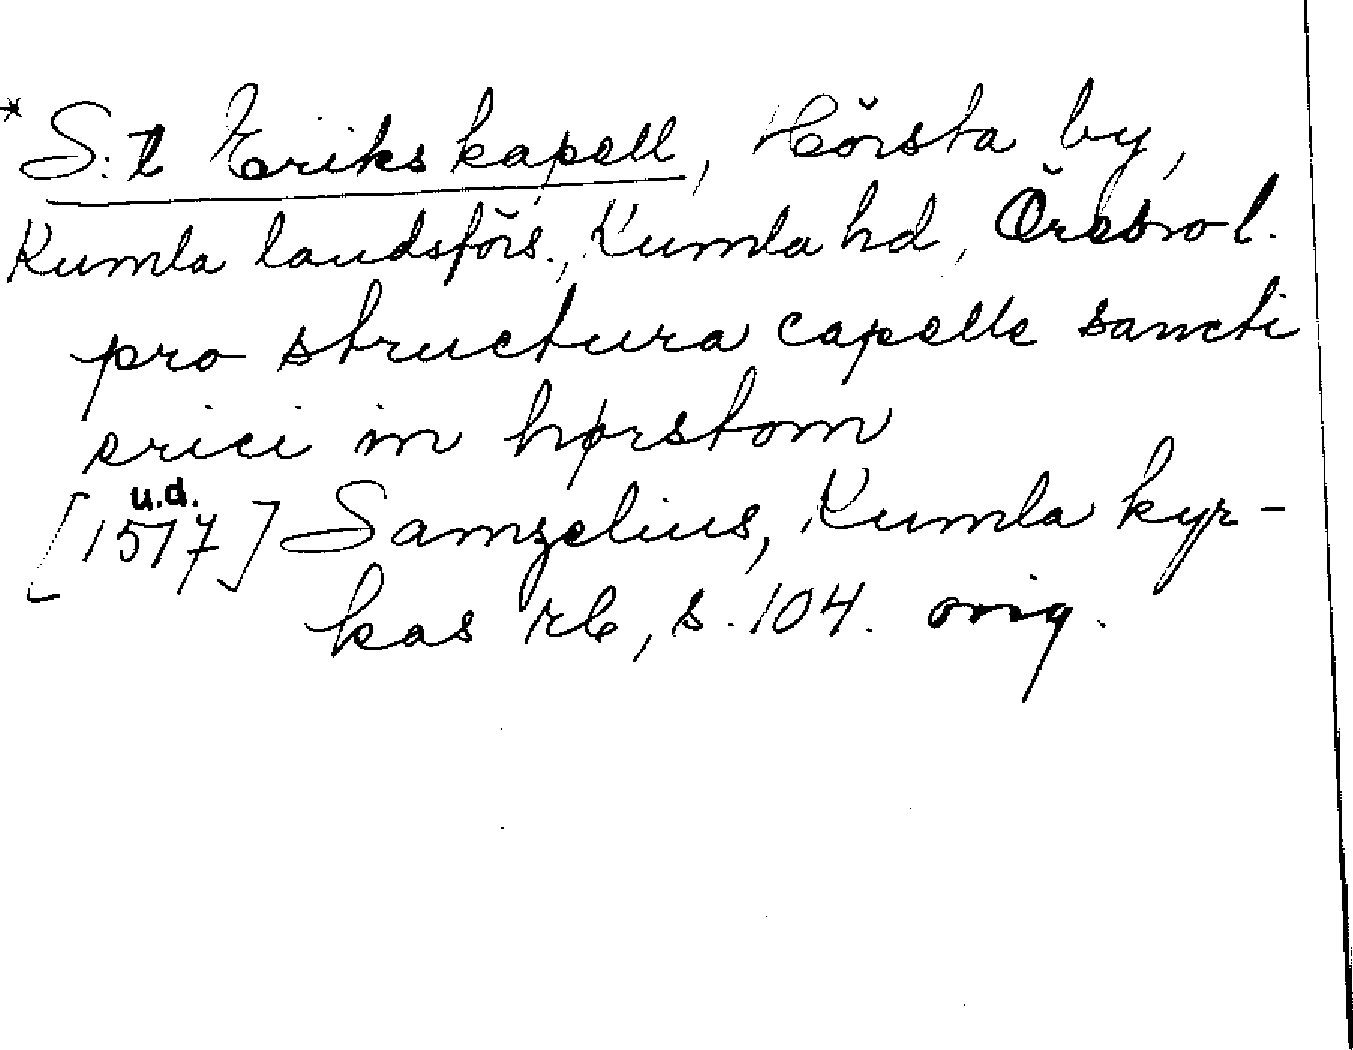 *S:t Eriks kapell, Hörsta by,
Kumla landsförs., Kumla hd, Örebro l.
pro structura capelle sancti
erici in hørstom
u.d.
[1517] Samzelius, Kumla kyr-
kas rb, s. 104. orig.